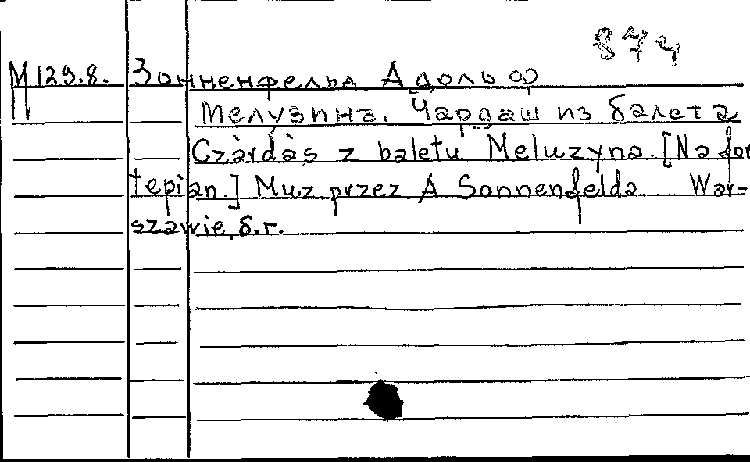 874
М 129.8. Зонненфельд Адольф
Мелузина. Чардаш из балета
Czàrdàs z baletu Meluzyna. [Na for
tepian.] Muz przez A Sonnenfelda War-
szawie, б.г.